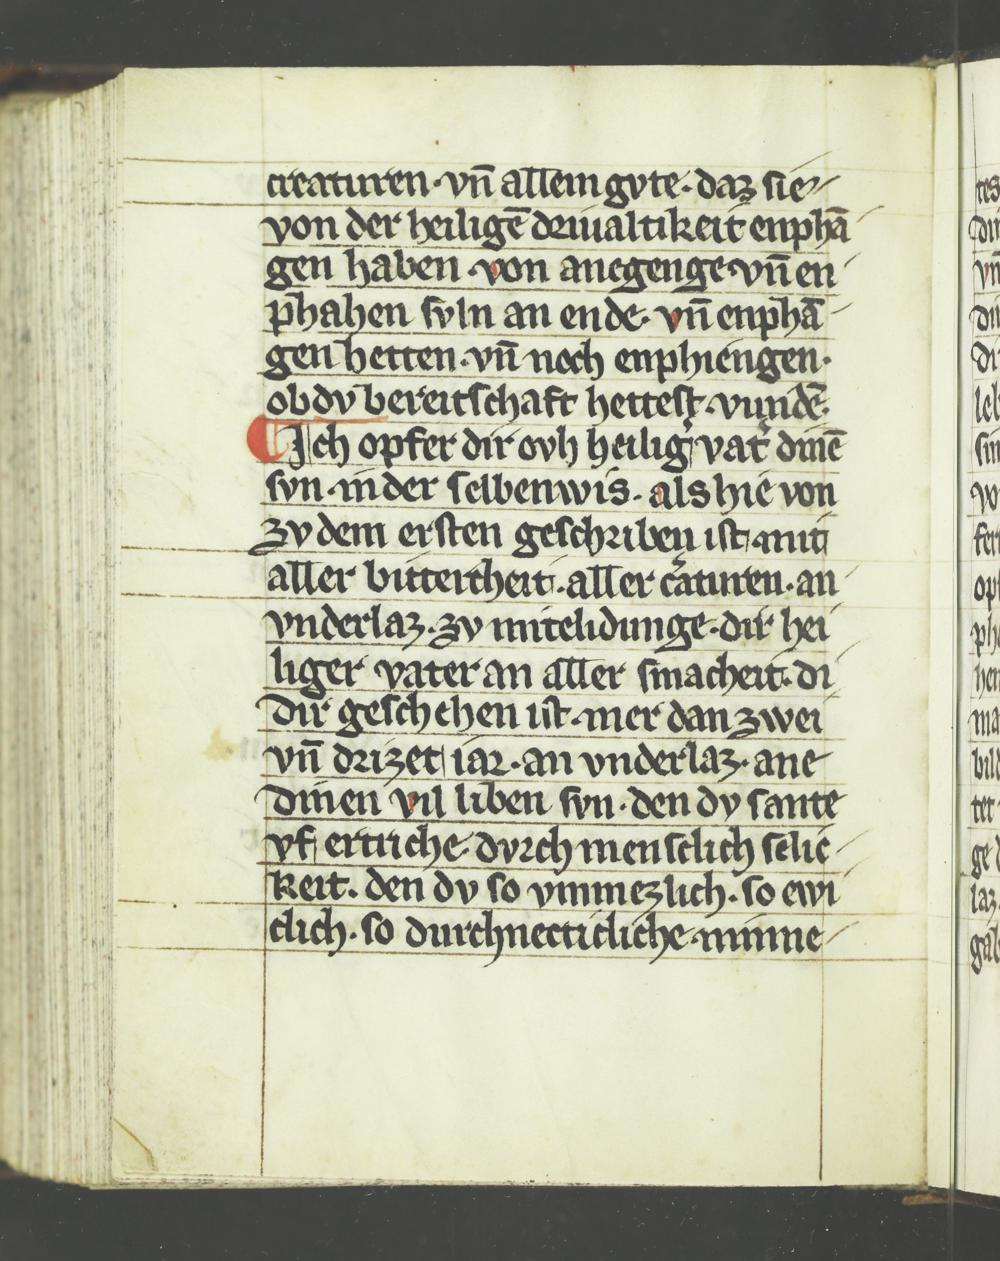 creaturen · vn̄ allem gvte · daz sie
von der heiligē driualtikeit enphā
gen haben · von anegenge · vn̄ en
phahen svln an ende · vn̄ enphā
gen hetten · vn̄ noch enphiengen ·
ob dv bereitschaft hettest · vundē ·
Ich opfer dir ovh heiliger vater dinē
svn · in der selben wis · als hie von
zv dem ersten geschriben ist · mit
aller bittercheit · aller c̄aturen · an
vnderlaz · zv mitelidunge · dir hei
liger vater an aller smacheit · di
dir geschehen ist · mer dan zwei
vn̄ drizet iar · an vnderlaz · ane
dinen vil liben svn · den dv sante
vf ertriche · dvrch menslich selic
keit · den dv so vmmezlich · so ewi
clich · so durchnecticliche · minne